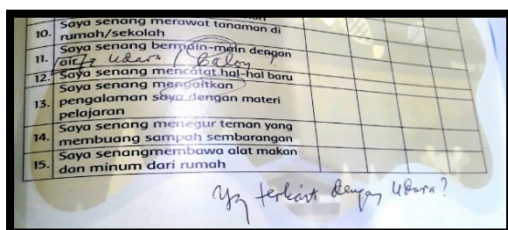 10. Saya senang merawat tanaman di
rumah/sekolah
11. Saya senang bermain-main dengan
air/ udara / Balon ?
12. Saya senang mencatat hal-hal baru
13. Saya senang mengaitkan
pengalaman saya dengan materi
pelajaran
14. Saya senang menegur teman yang
membuang sampah sembarangan
15. Saya senangmembawa alat makan
dan minum dari rumah
yg terkait dengan udara?